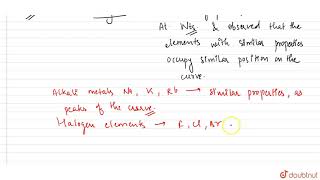 At. Wts & observed that the
elements with similar properties
occupy similar position on the
curve.
Alkali metals Na, K, Rb → similar properties, as
peaks of the curve.
Halogen elements → F, Cl, Br
doubtnut